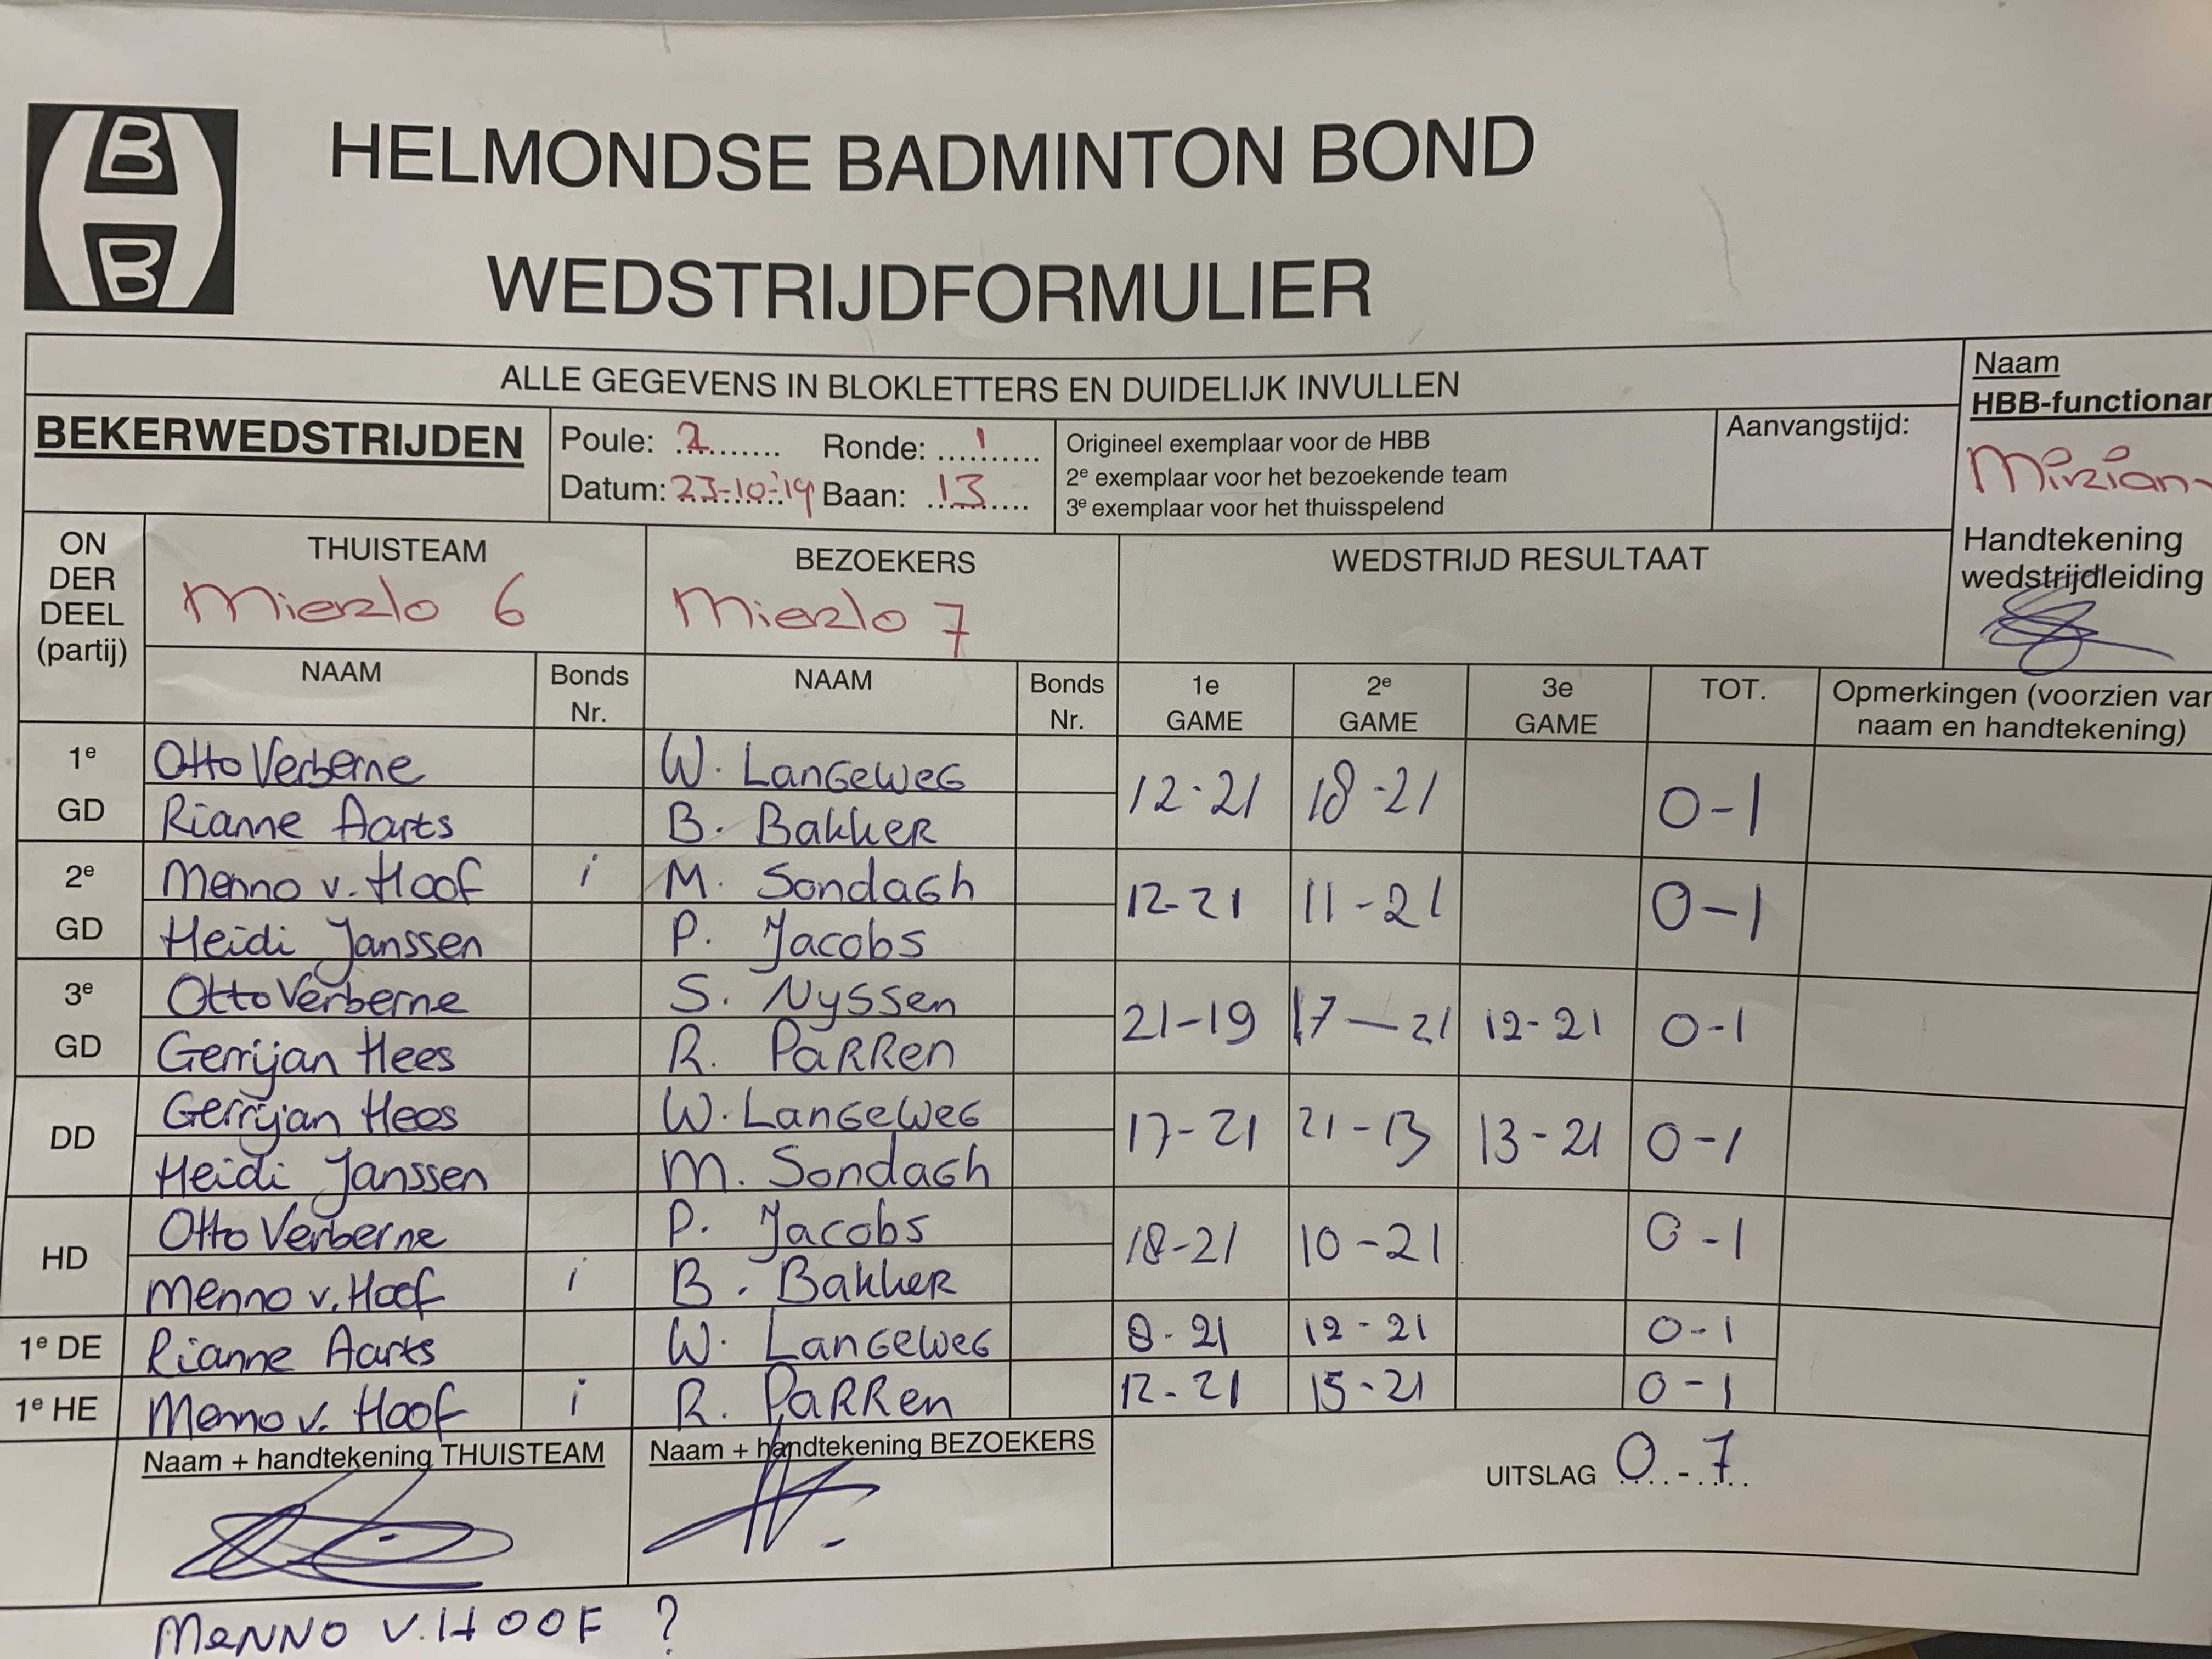 B
B
HELMONDSE BADMINTON BOND
WEDSTRIJDFORMULIER
ALLE GEGEVENS IN BLOKLETTERS EN DUIDELIJK INVULLEN
Naam
HBB-functionar
Mirian
BEKERWEDSTRIJDEN
Poule: 2 Ronde: 1
Datum: 23-10-'19 Baan: 13
Origineel exemplaar voor de HBB
2e exemplaar voor het bezoekende team
3e exemplaar voor het thuisspelend
Aanvangstijd:
Handtekening
wedstrijdleiding
ON
DER
DEEL
(partij)
THUISTEAM
Mierlo 6
BEZOEKERS
Mierlo 7
WEDSTRIJD RESULTAAT
NAAM Bonds Nr. NAAM Bonds Nr. 1e GAME 2e GAME 3e GAME TOT. Opmerkingen (voorzien van naam en handtekening)
1e GD
Otto Verberne W. LanGeweG 12-21 18-21 0-1
Rianne Aarts B. Bakker
2e GD
Menno v. Hoof i M. SondaGh 12-21 11-21 0-1
Heidi Janssen P. Jacobs
3e GD
Otto Verberne S. Nyssen 21-19 17-21 12-21 0-1
Gerrijan Hees R. PaRRen
DD
Gerrijan Hees W. LanGeweG 17-21 21-13 13-21 0-1
Heidi Janssen M. SondaGh
HD
Otto Verberne P. Jacobs 18-21 10-21 0-1
Menno v. Hoof i B. Bakker
1e DE Rianne Aarts W. LanGeweG 8-21 12-21 0-1
1e HE Menno v. Hoof i R. PaRRen 12-21 15-21 0-1
Naam + handtekening THUISTEAM
Naam + handtekening BEZOEKERS
UITSLAG 0-7
MeNNO V. HOOF ?